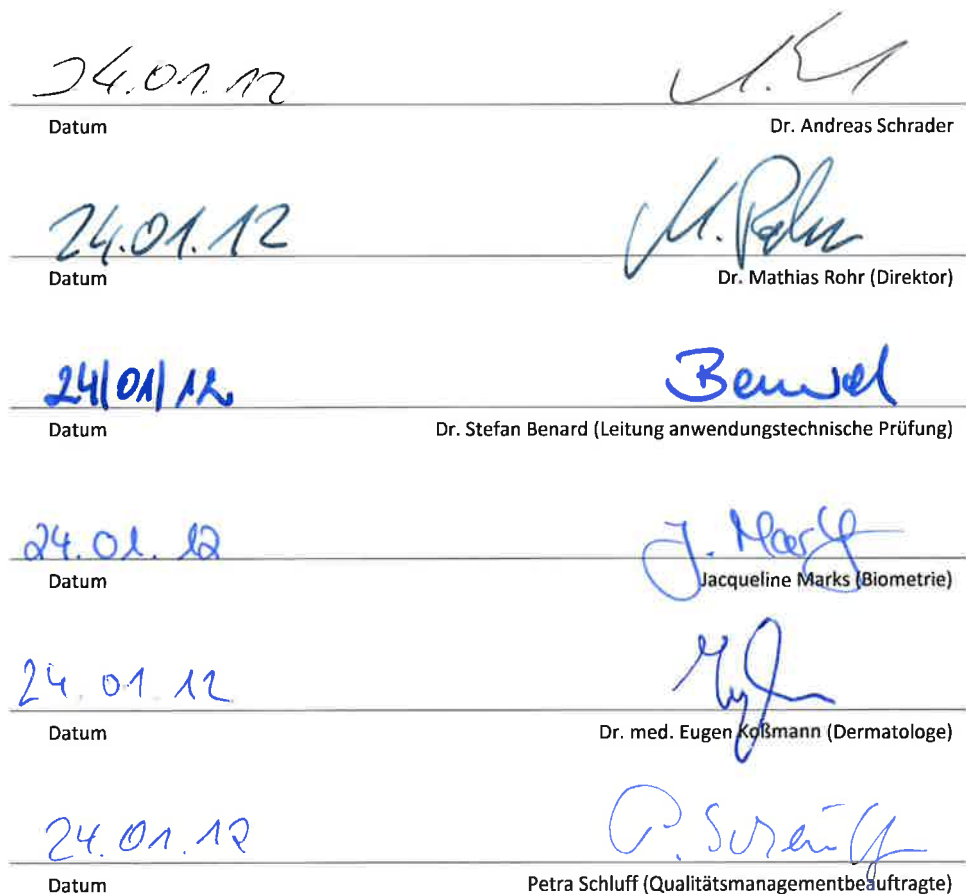 24.01.12
Datum
Dr. Andreas Schrader
24.01.12 M. Rohr
Datum
Dr. Mathias Rohr (Direktor)
24/01/12 Benard
Datum Dr. Stefan Benard (Leitung anwendungstechnische Prüfung)
24.01.12 J. Marks
Datum
Jacqueline Marks (Biometrie)
24.01.12
Datum
Dr. med. Eugen Koßmann (Dermatologe)
24.01.12 P. Schluff
Datum
Petra Schluff (Qualitätsmanagementbeauftragte)